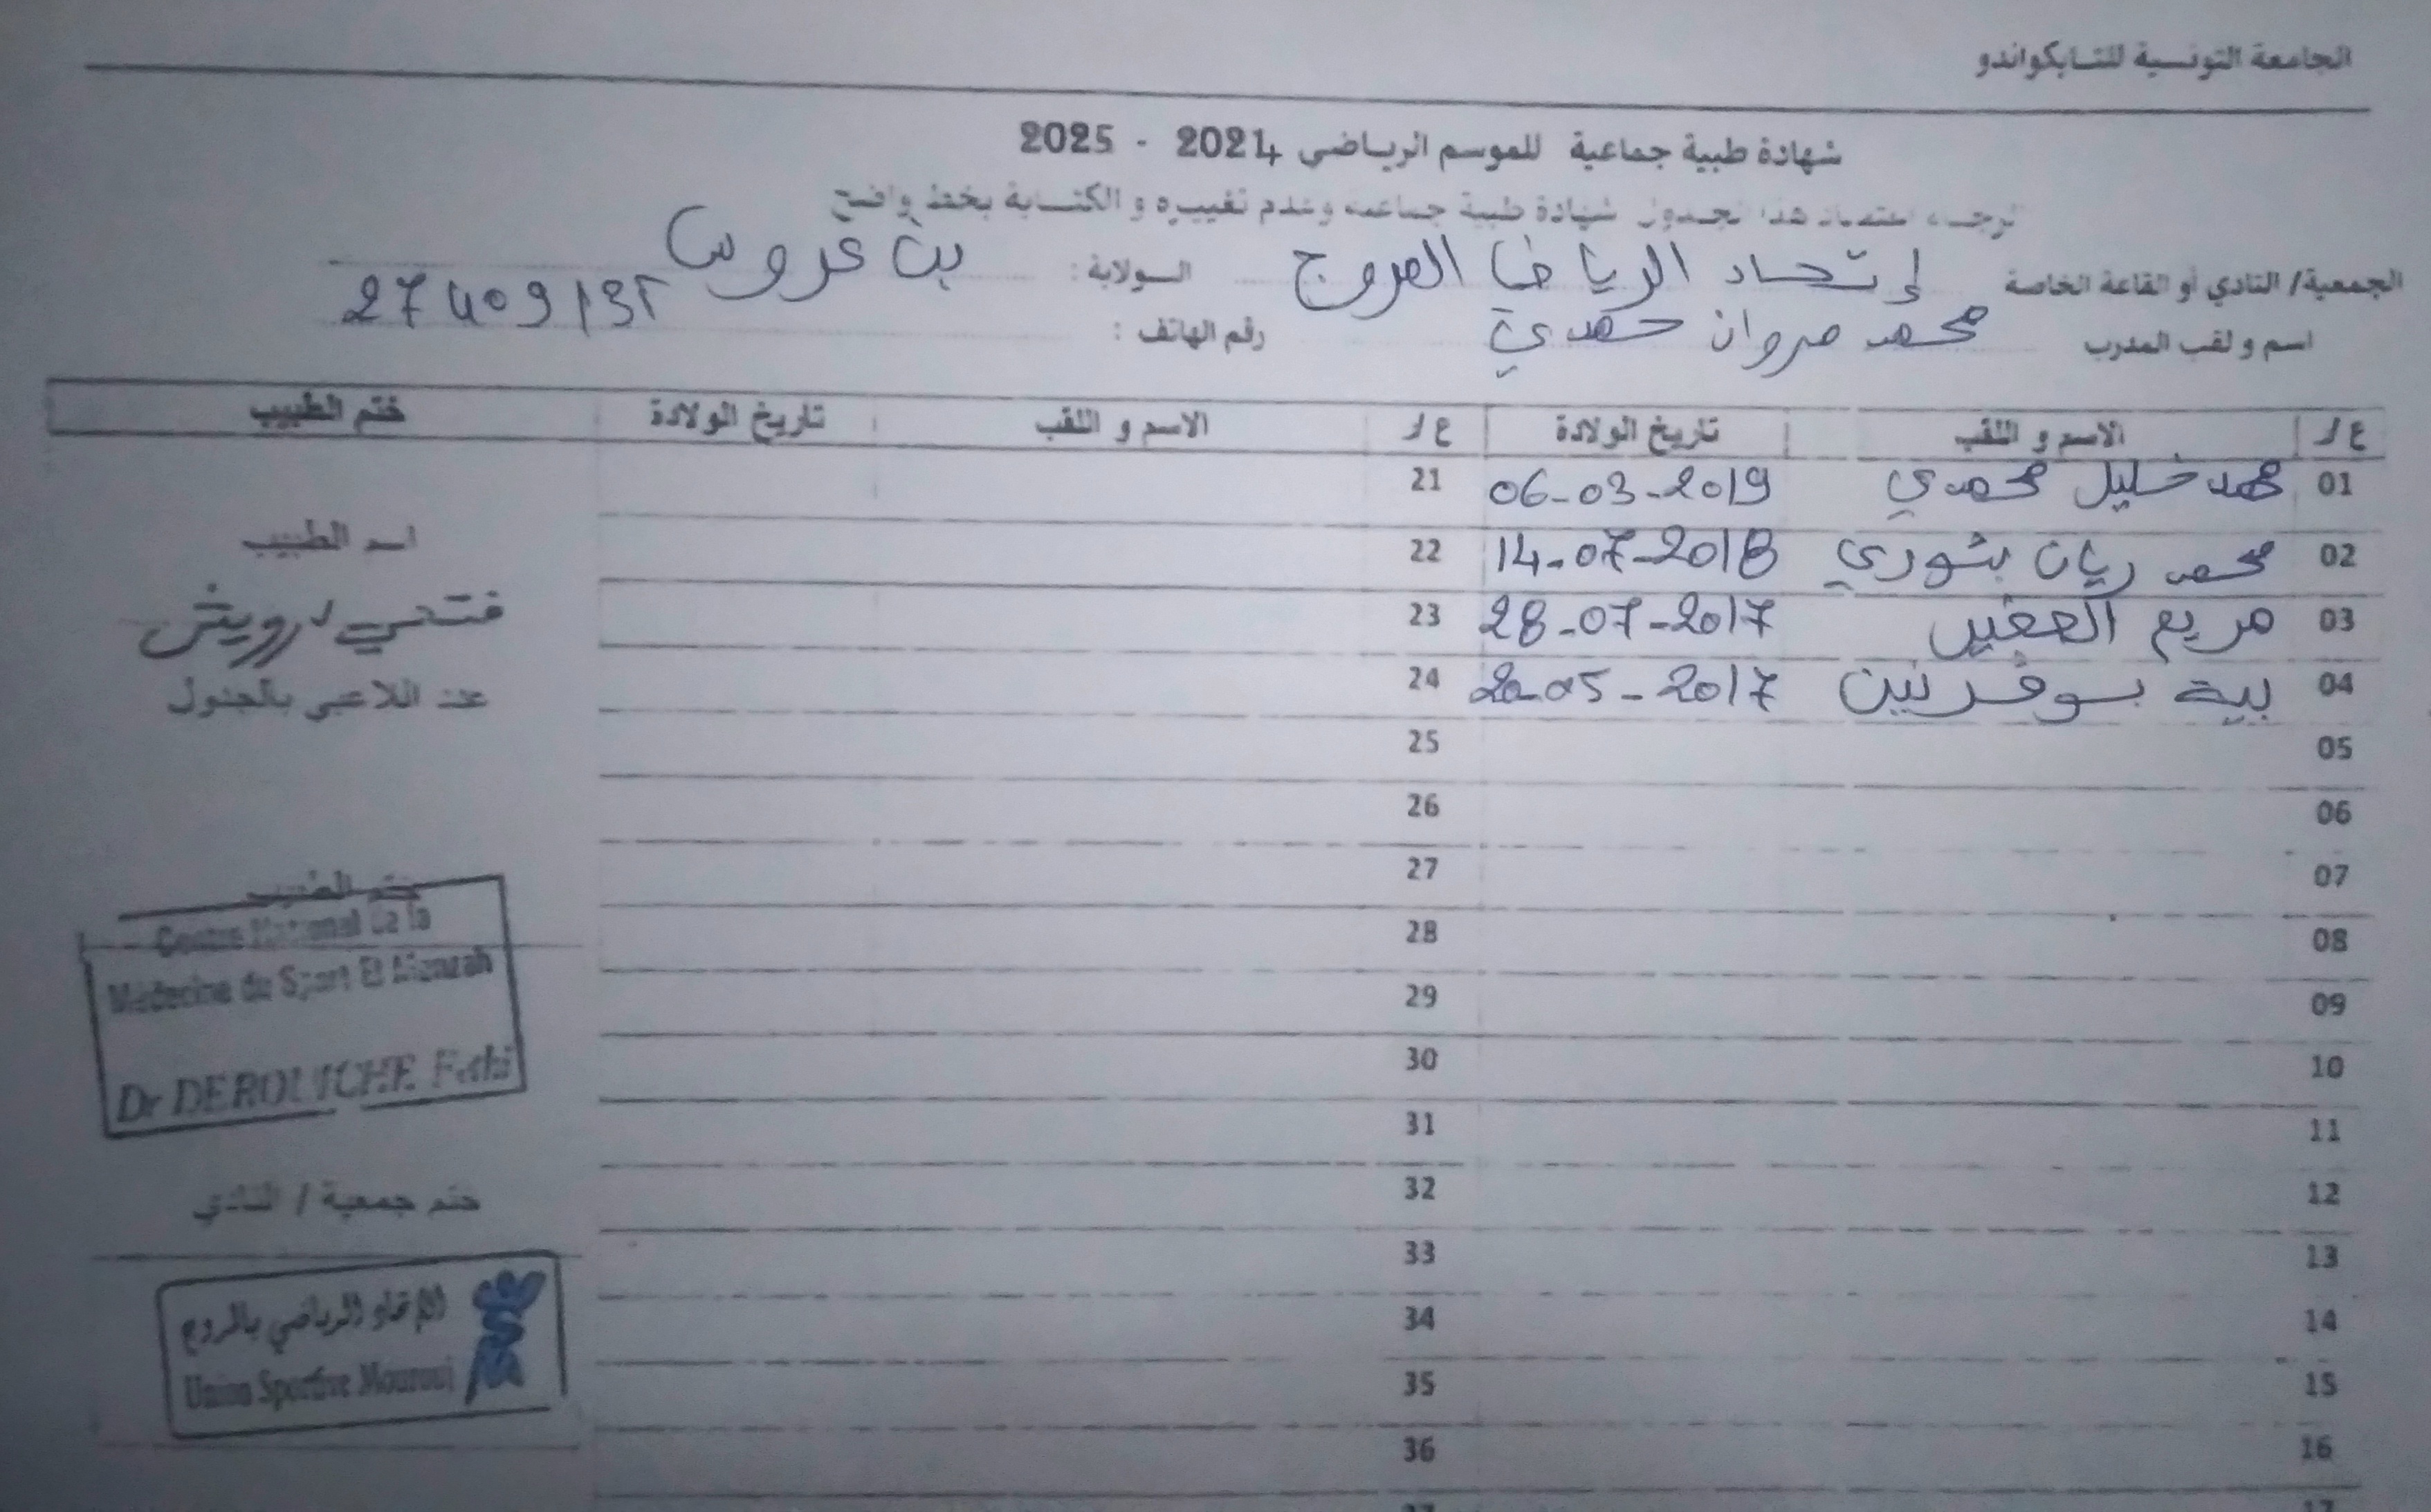 الجامعة التونسية للتايكواندو
شهادة طبية جماعية للموسم الرياضي 2024 - 2025
نرجو اعتماد هذا الجدول شهادة طبية جماعية وعدم تغييره و الكتابة بخط واضح
الجمعية/ النادي أو القاعة الخاصة إتحاد الرياضي المروج الولاية: بن عروس
اسم و لقب المدرب محمد مروان حمدي رقم الهاتف:
ع/ر الاسم و اللقب تاريخ الولادة ع/ر الاسم و اللقب تاريخ الولادة ختم الطبيب
01 محمد خليل محمدي 06-03-2019 21
02 محمد ريان بشوري 14-07-2018 22
03 مريم 28-07-2017 23
04 بية بوقرنين 20-05-2017 24
05 25
06 26
07 27
08 28
09 29
10 30
11 31
12 32
13 33
14 34
15 35
16 36
17 37
اسم الطبيب
فتحي درويش
عدد اللاعبي بالجدول
ختم الطبيب
Centre National de la
Médecine de Sport El Menzah
Dr DEROUICHE Fethi
ختم جمعية / النادي
الإتحاد الرياضي بالمروج
Union Sportive Mourouj